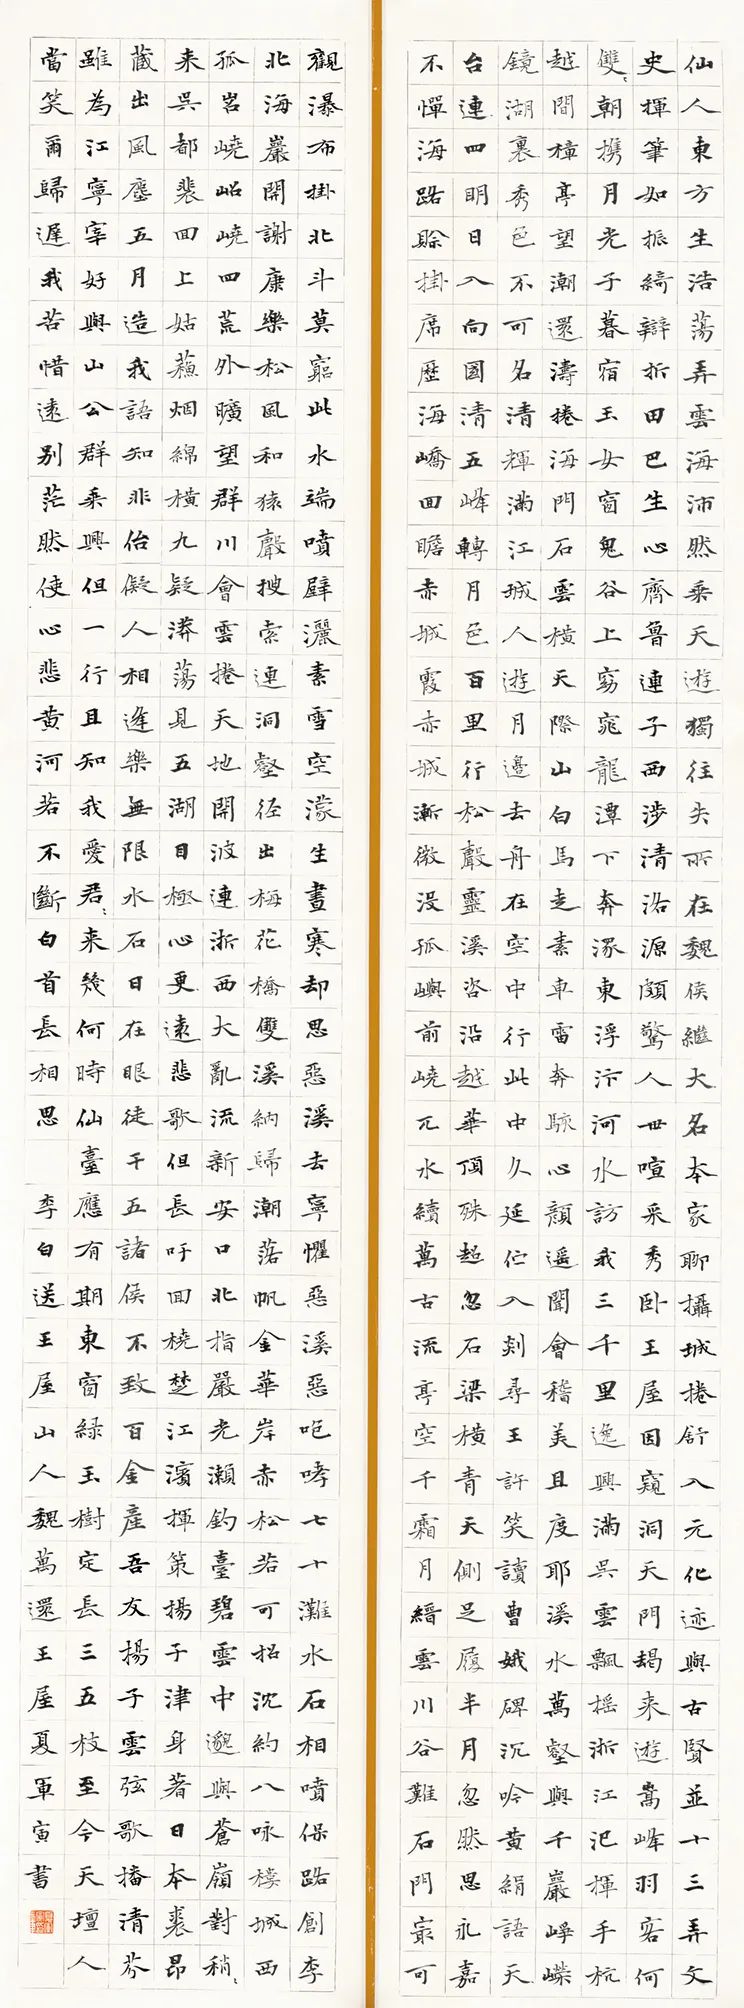 仙人東方生浩蕩弄雲海沛然乘天遊獨往失所在魏侯繼大名本家聊攝城捲舒入元化迹與古賢並十三弄文
史揮筆如振綺辯折田巴生心齊魯連子西涉清洛源頗驚人世喧采秀卧王屋因窺洞天門朅来遊嵩峰羽客何
雙〻朝携月光子暮宿玉女窗鬼谷上窈窕龍潭下奔潈東浮汴河水訪我三千里逸興滿吳雲飄摇浙江汜揮手杭
越間樟亭望潮還濤捲海門石雲橫天際山白馬走素車雷奔駭心顏遥聞會稽美且度耶溪水萬壑與千巖崢嶸
鏡湖裏秀色不可名清輝滿江城人遊月邊去舟在空中行此中久延佇入剡尋王許笑讀曹娥碑沉吟黃絹語天
台連四明日入向國清五峰轉月色百里行松聲靈溪咨沿越華頂殊超忽石梁橫青天側足履半月忽然思永嘉
不憚海路賒掛席歷海嶠回瞻赤城霞赤城漸微沒孤嶼前嶢兀水續萬古流亭空千霜月縉雲川谷難石門最可
觀瀑布掛北斗莫窮此水端噴壁灑素雪空濛生晝寒却思惡溪去寧懼惡溪惡咆哮七十灘水石相噴保路創李
北海巖開謝康樂松風和猿聲搜索連洞壑径出梅花橋雙溪納歸潮落帆金華岸赤松若可招沈約八咏樓城西
孤岧嶢岹嶢四荒外曠望群川會雲捲天地開波連浙西大亂流新安口北指嚴光瀨釣臺碧雲中邈與蒼嶺對稍〻
来吳都裴回上姑蘇烟綿橫九疑漭蕩見五湖目極心更遠悲歌但長吁回橈楚江濱揮策揚子津身著日本裘昂
藏出風塵五月造我語知非佁儗人相逢樂無限水石日在眼徒干五諸侯不致百金產吾友揚子雲弦歌播清芬
雖為江寧宰好與山公群乘興但一行且知我愛君〻来幾何時仙臺應有期東窗綠玉樹定長三五枝至今天壇人
當笑爾歸遲我苦惜遠別茫然使心悲黃河若不斷白首長相思 李白送王屋山人魏萬還王屋夏軍寅書